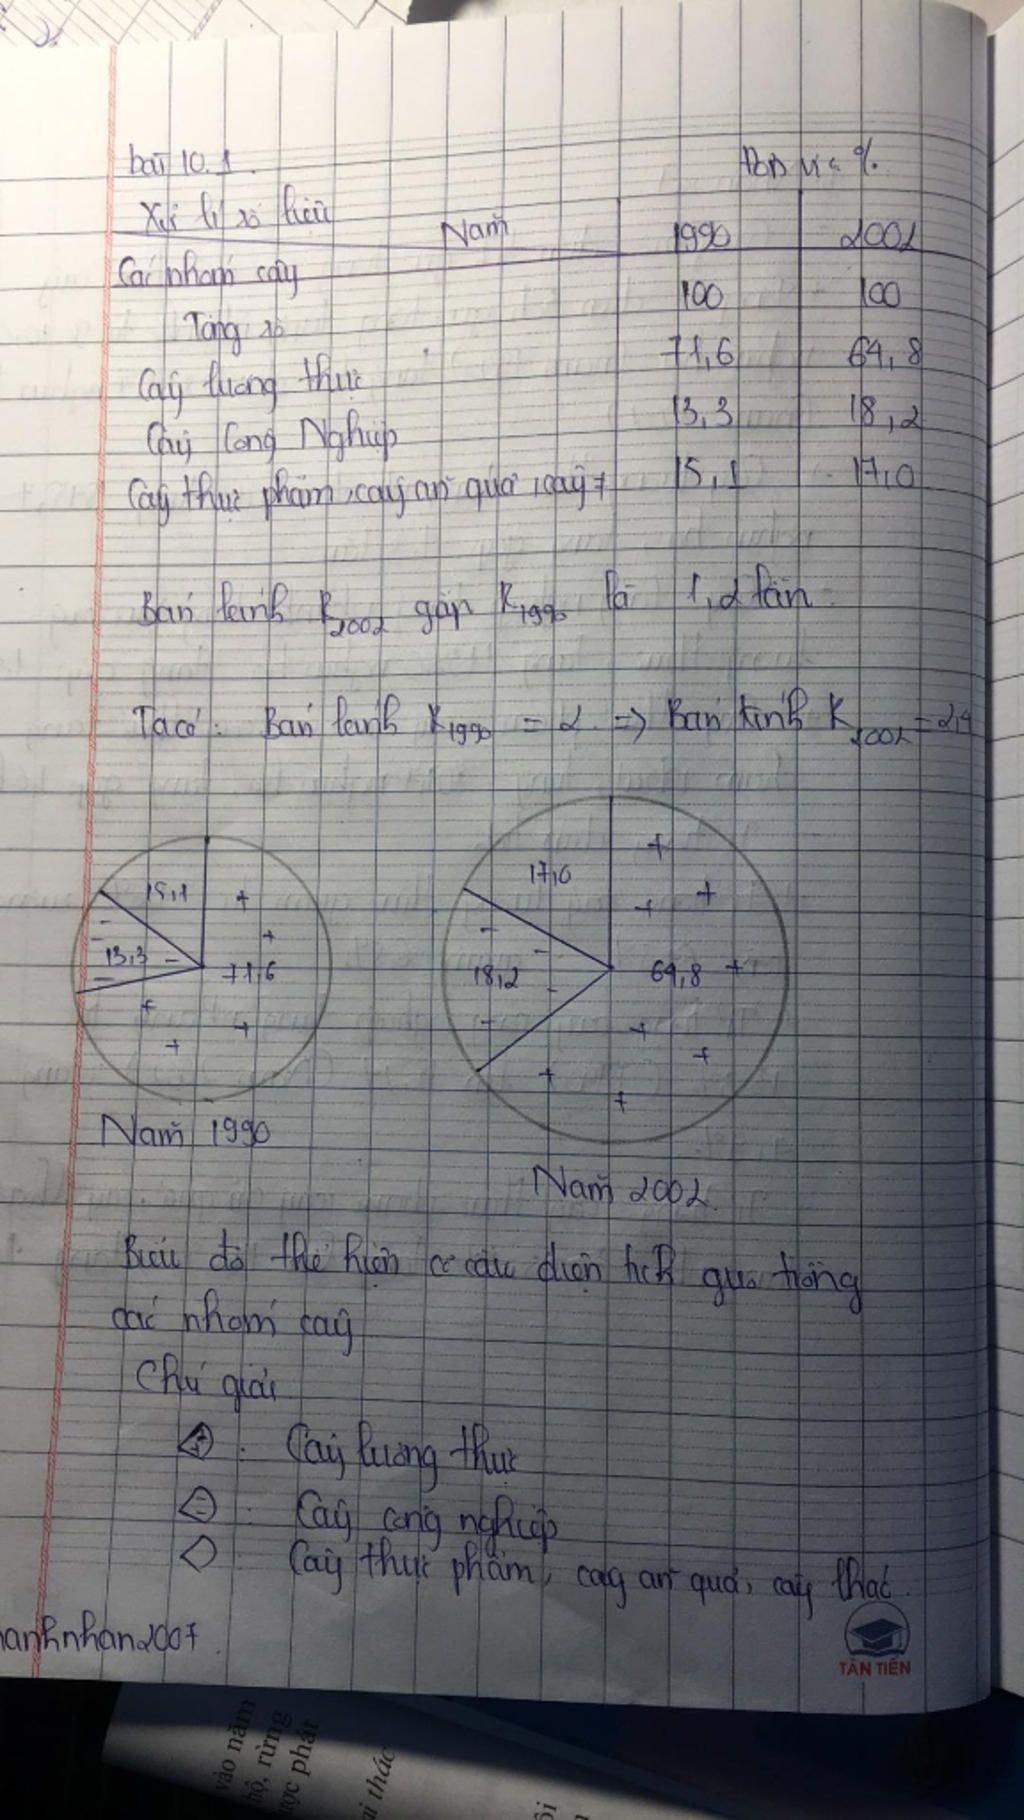 bài 10.1
Đơn vị: %
Xử lí số liệu
Năm 1990 2002
Các nhóm cây
Tổng số 100 100
Cây lương thực 71,6 64,8
Cây Công Nghiệp 13,3 18,2
Cây thực phẩm, cây ăn quả, cây ≠ 15,1 17,0
Bán kính R2002 gấp R1990 là 1,2 lần
Ta có: Bán kính R1990 = 2 => Bán kính R2002 = 2,4
15,1
13,3
71,6
17,0
18,2
64,8
Năm 1990
Năm 2002
Biểu đồ thể hiện cơ cấu diện tích gieo trồng
các nhóm cây
Chú giải
+ : Cây lương thực
= : Cây công nghiệp
: Cây thực phẩm, cây ăn quả, cây khác.
anhnhan2007
TÂN TIẾN
vào năm
hộ, rừng
ược phát
ai thác